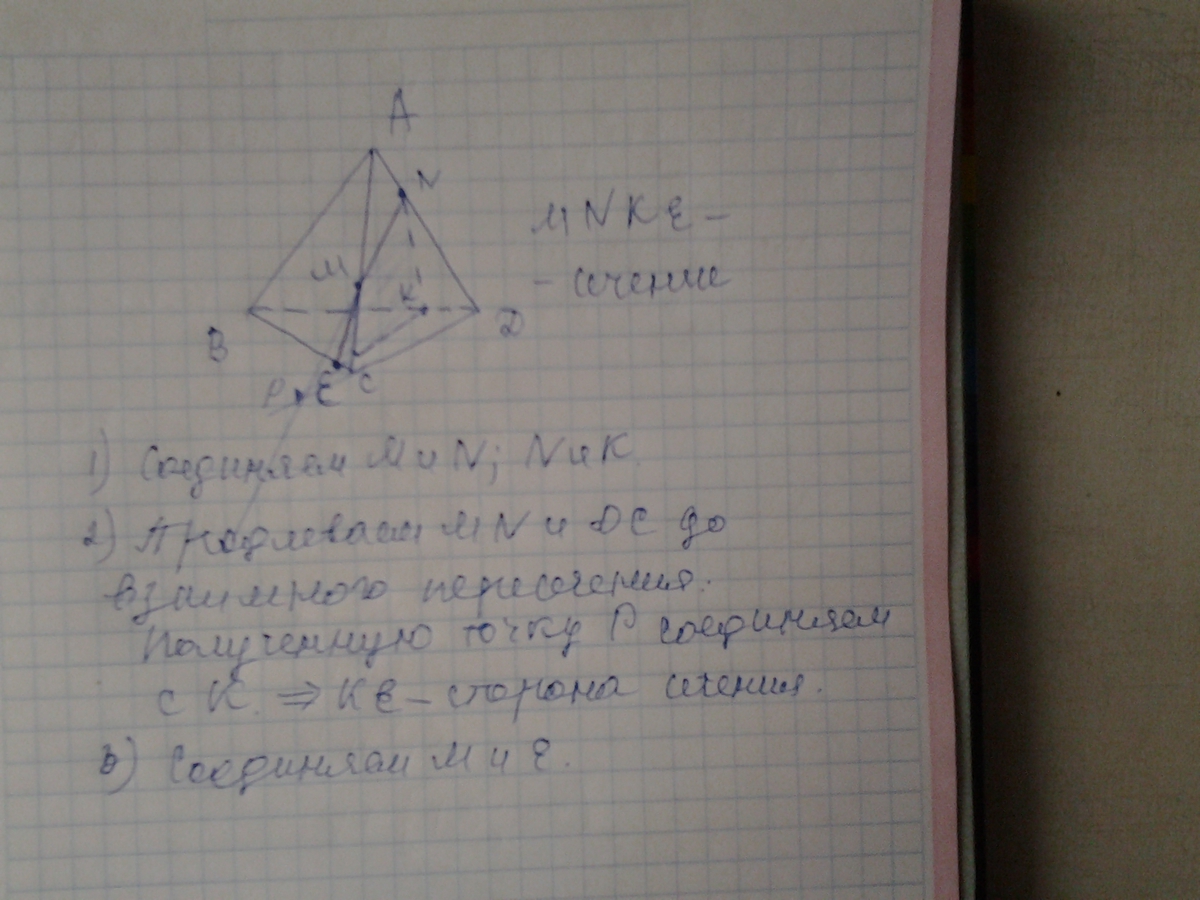 A
N
MNKE –
M
K
– сечение
B
D
P
E
C
1) Соединяем M и N; N и K
2) Продлеваем MN и DC до
взаимного пересечения.
Полученную точку P соединяем
с K. ⇒ KE – сторона сечения.
3) Соединяем M и E.